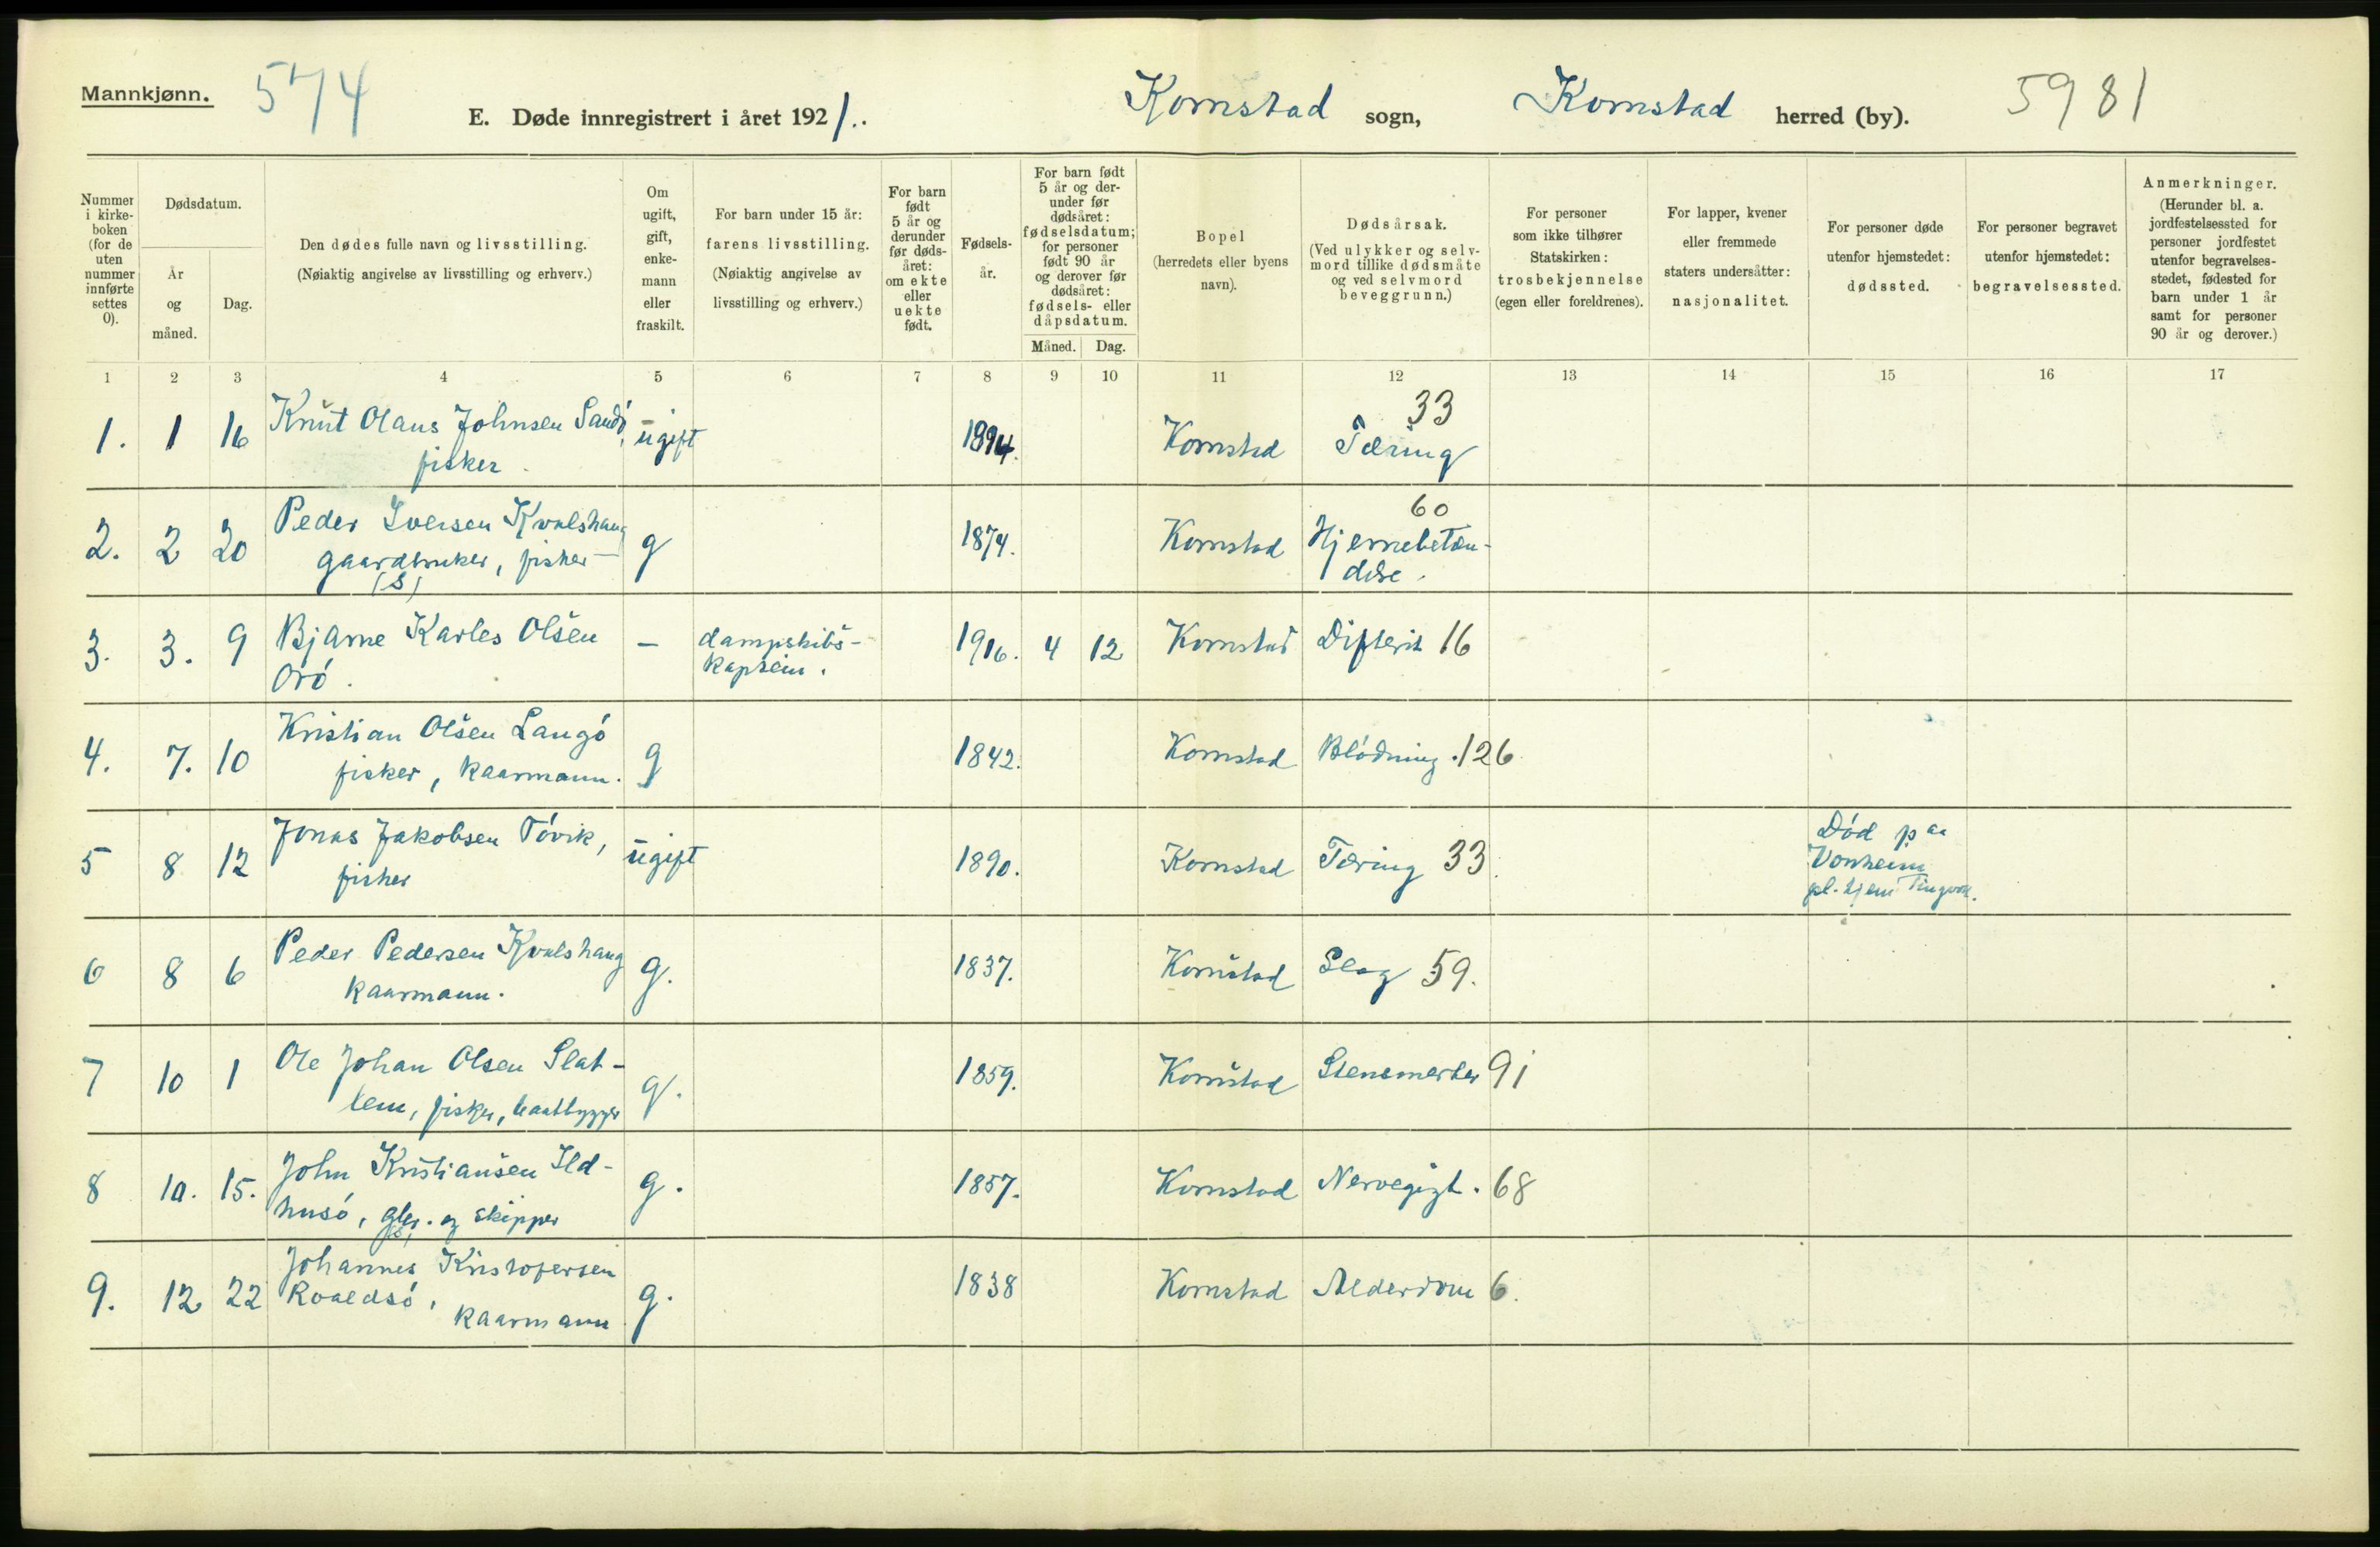 Mannkjønn.
574
E. Døde innregistrert i året 1921.
Kornstad sogn, Kornstad herred (by).
5981
Nummer i kirke-boken (for de uten nummer innførte settes 0).
Dødsdatum.
År og måned.
Dag.
Den dødes fulle navn og livsstilling.
(Nøiaktig angivelse av livsstilling og erhverv.)
Om ugift, gift, enke-mann eller fraskilt.
For barn under 15 år: farens livsstilling.
(Nøiaktig angivelse av livsstilling og erhverv.)
For barn født 5 år og derunder før døds-året: om ekte eller uekte født.
Fødsels-år.
For barn født 5 år og der-under før dødsåret: fødselsdatum; for personer født 90 år og derover før dødsåret: fødsels- eller dåpsdatum.
Måned. Dag.
Bopel (herredets eller byens navn).
Dødsårsak.
(Ved ulykker og selv-mord tillike dødsmåte og ved selvmord beveggrunn.)
For personer som ikke tilhører Statskirken: trosbekjennelse (egen eller foreldrenes).
For lapper, kvener eller fremmede staters undersåtter: nasjonalitet.
For personer døde utenfor hjemstedet: dødssted.
For personer begravet utenfor hjemstedet: begravelsessted.
Anmerkninger.
(Herunder bl. a. jordfestelsessted for personer jordfestet utenfor begravelses-stedet, fødested for barn under 1 år samt for personer 90 år og derover.)
1 2 3 4 5 6 7 8 9 10 11 12 13 14 15 16 17
1. 1 16 Knut Olaus Johnsen Sandö, ugift 1894. Kornstad Tæring 33
fisker.
2. 2 20 Peder Iversen Kvalshaug g 1874. Kornstad Hjernebetæn- 60
gaardbruker, fisker delse.
(S)
3. 3. 9 Bjarne Karles Olsen — dampskibs- 1916. 4 12 Kornstad Difterit 16
Orö. kaptein.
4. 7. 10 Kristian Olsen Langö g 1842. Kornstad Blödning. 126
fisker, kaarmann.
5 8 12 Jonas Jakobsen Tövik, ugift 1890. Kornstad Tæring 33. Död paa
fisker Vonheim
pl. hjem Tingvoll.
6 8 6 Peder Pedersen Kvalshaug g. 1837. Kornstad Slag 59.
kaarmann.
7 10 1 Ole Johan Olsen Slat- g. 1859. Kornstad Stensmerter 91
lem, fisker, baatbygger
8 10. 15. John Kristiansen Ild- g. 1857. Kornstad Nervegigt. 68
husö, gbr. og skipper
9. 12 22 Johannes Kristofersen g. 1838 Kornstad Alderdom 6.
Roaldsö, kaarmann